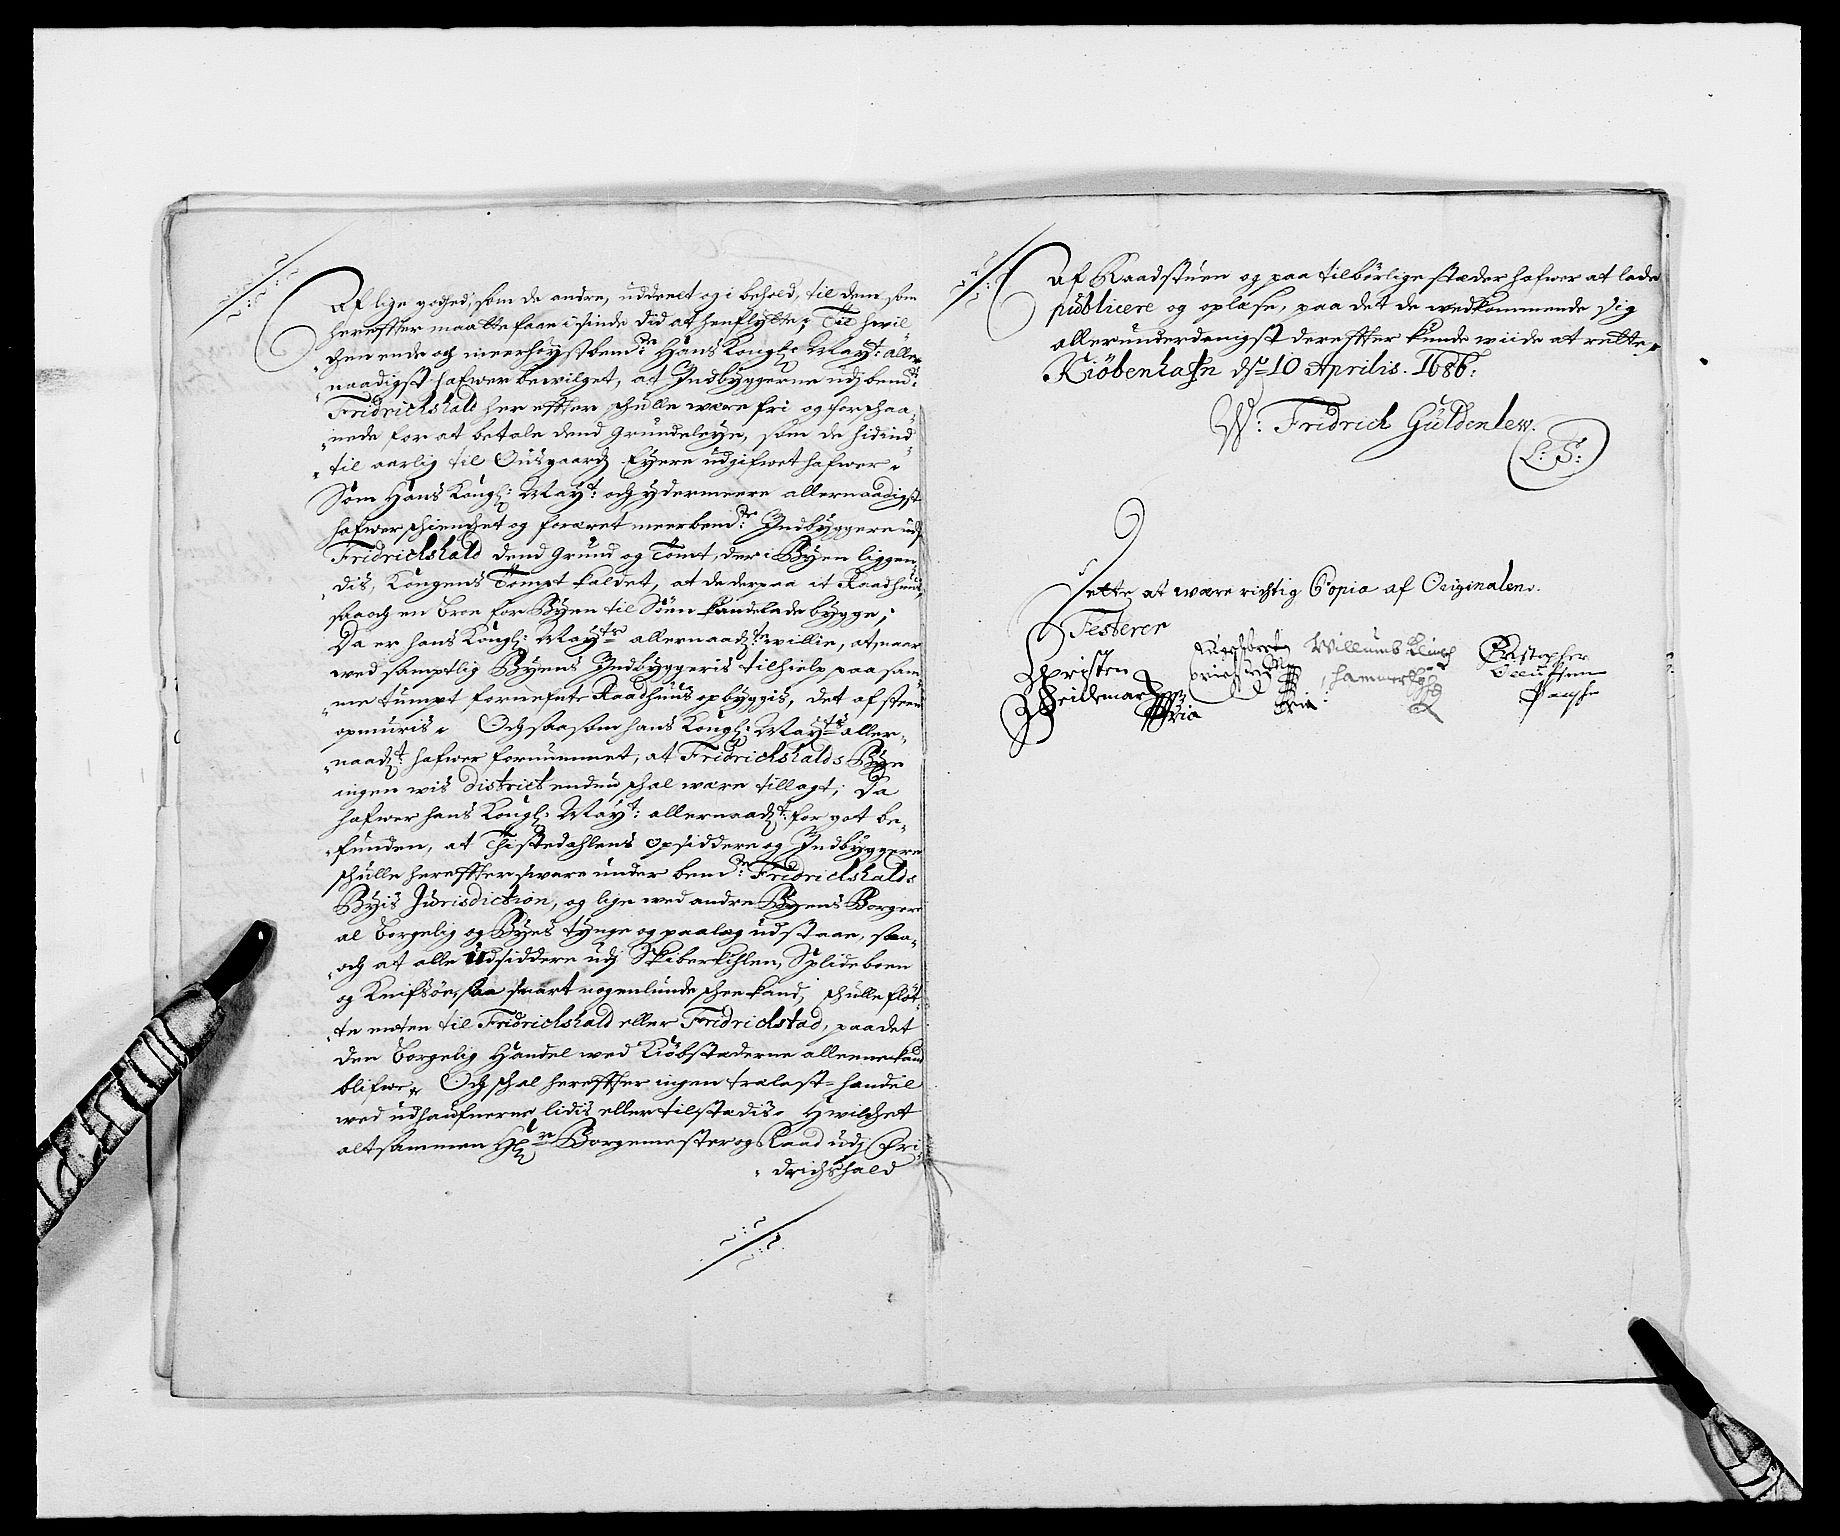 Af lige goched, som de andre, uddeelt og i behold, til dem som
herefter maatte faae i sinde did at henflytte; Til hvil
chen ende och meerhøystbem:te Hans Kongl: May:t aller
naadigst hafwer bewilget, at Indbyggerne udj bem:te
Fridrichshald her effter schulle være fri og forschaa-
nede for at betale dend Grundeleye, som de hidind
til aarlig til Ousgaards Eyere udgifwet hafwer.
Som Hans Kongl: May:t och ydermeere allernaadigst
hafwer schienchet og foræret meerbem:te Indbyggere udj
Fridrichshald dend Grund og Tomt, der i Byen liggen-
dis, Kongens Tompt kaldet, at de derpaa it Raadhuus,
saa och en Broe for Byen til Siøen kand lade bygge;
Da er hans Kongl: May:ts allernaad:te willie, at naar
wed samptlig Byens Indbyggeris tilhielp paa sam-
me tumpt fornefnte Raadhuus opbyggis, det af steen
opmuris. Och saasom hans Kongl: May:ts aller-
naad:t hafwer fornummet, at Fridrichshalds Bye
ingen wis district endnu schal være tillagt; Da
hafwer hans Kongl: May:t allernaad:t for got be-
funden, at Thistedahlens Opsiddere og Indbyggere
schulle hereffter sware under bem:te Fridrichshalds
Byis Jurisdiction, og lige wed andre Byens Borgere
al borgelig og Byes tynge og paalæg udstaae, saa-
och at alle Udsiddere udj Skiberkihlen, Splideboen
og Knifsøe, saa snart nogenlunde schee kand, schulle fløt-
te enten til Fridrichshald eller Fridrichstad, paa det
den borgelig Handel wed Kiøbstæderne alleene kand
blifwe. Och schal hereffter ingen tralast-handel
wed udhaufnerne lidis eller tilstædis. Hwilchet
altsammen Borgemester og Raad udj Fri-
drichshald
Af Raadstuen og paa tilbørlige stæder hafwer at lade
publicere og oplæse, paa det de wedkommende sig
allerunderdanigst dereffter kunde wiide at rette.
Kiöbenhafn d: 10 Aprilis. 1686:
W: Fridrich Güldenlew.
L: S:
Dette at være richtig Copia af Originalen.
Testerer
Christen
Heidemarch
Mpria
Willumb Klinch
Hammerboe
Christopher
Oluffsen
Paaske